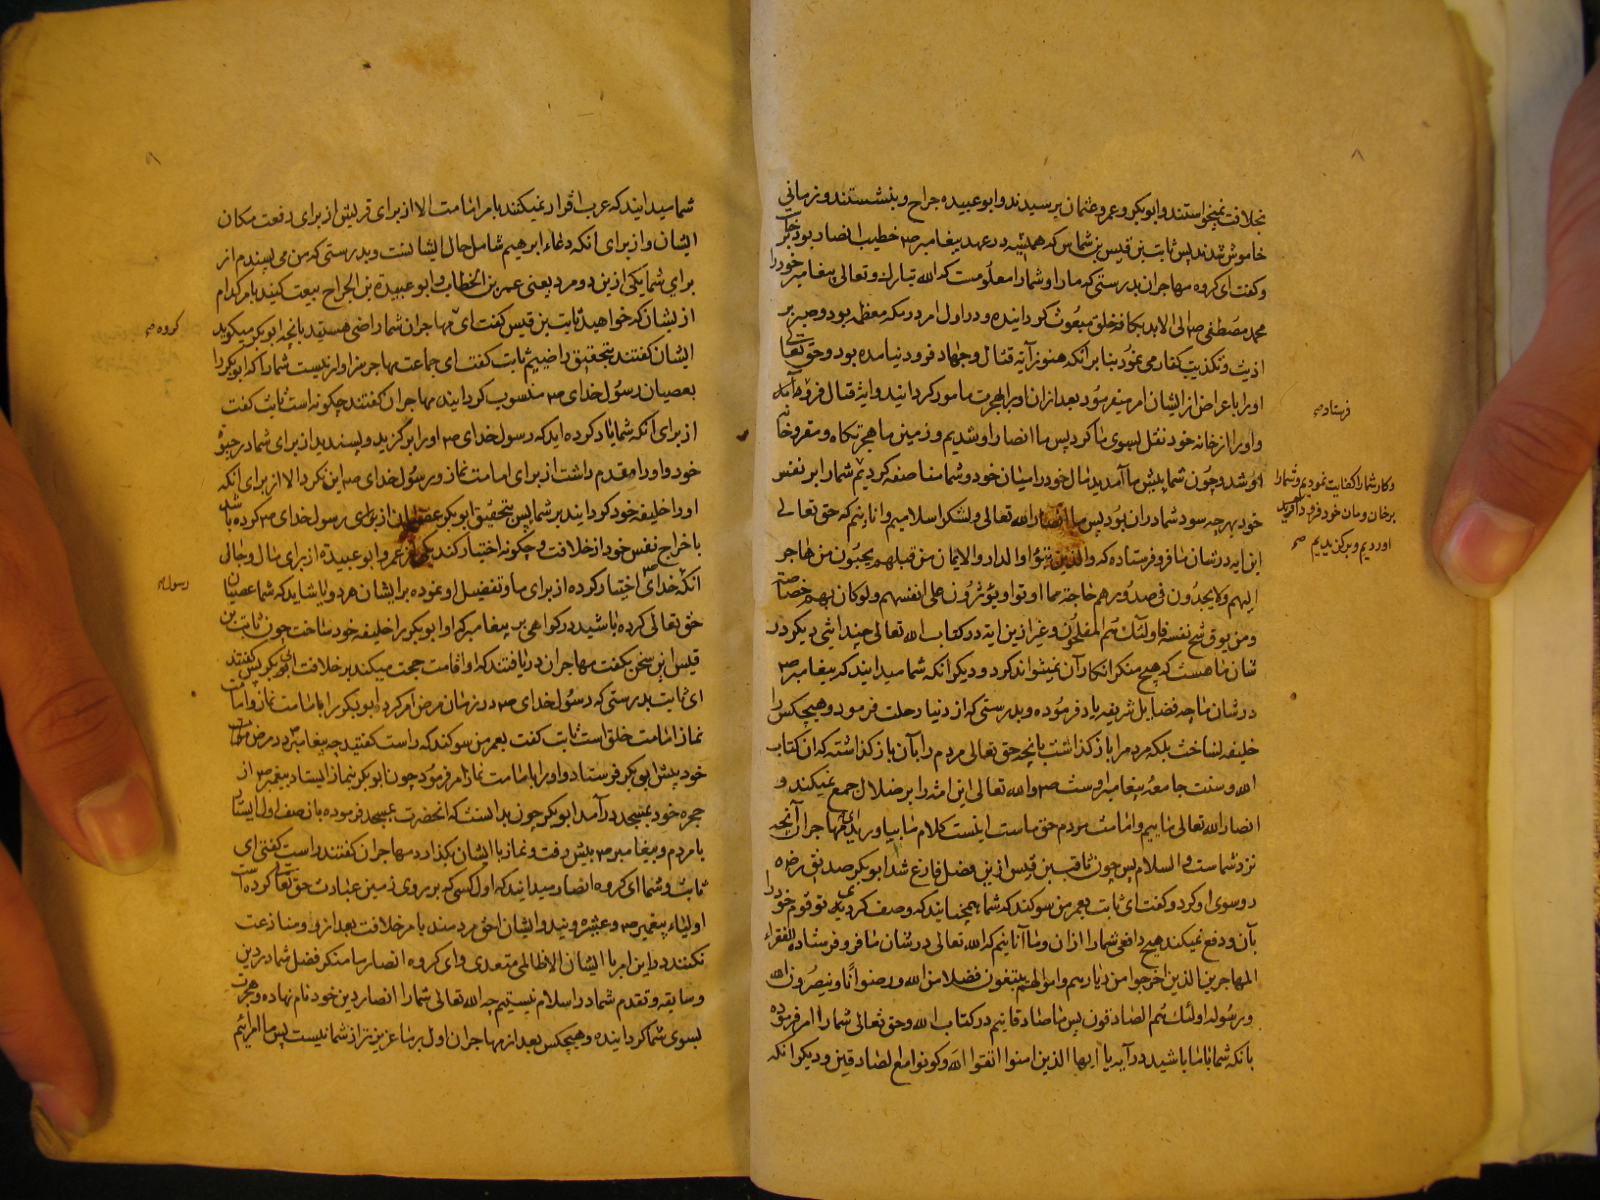 بخلافت نمیخواستند وابوبکر وعمر وعثمان برسیدند وابو عبیده جراح وبنشستند وزمانی
خاموش شدند پس ثابت بن قیس بن شماس که همیشه در عهد پیغامبر ص خطیب انصار بود برخاست
وکفت ای کروه مهاجران بدرستی که مارا وشمارا معلومست که الله تبارک وتعالی پیغامبر خود را
محمد مصطفی ص الی الابد بکافه خلق مبعوث کردانیده ودر اول امر در مکه معظمه بود وصبر بر
اذیت وتکذیب کفار می نمود بنابر آنکه هنوز آیه قتال وجهاد فرود نیامده بود وحق تعالی
اورا باعراض از ایشان امر میفرمود بعد ازان اورا بهجرت مامور کردانید وایة قتال فرو
فرستاد
واورا از خانه خود نقل بسوی ما کرد پس ما انصار او شدیم وزمین ما هجرتکاه ومقر وخانه
او شد وچون شما پیش ما آمدید مال خود را میان خود وشما مناصفه کردیم شمارا بر نفس
وکار شمارا کفایت نمودیم وشمارا
بر خان ومان خود فرود آوردیم
خود بهرچه سود شما دران بود پس ما انصار الله تعالی ولشکر اسلامیم وانانیم که حق تعالی
این ایه در شان ما فرو فرستاده که والذین تبوؤا الدار والایمان من قبلهم یحبون من هاجر
الیهم ولا یجدون فی صدورهم حاجة مما اوتوا ویؤثرون علی انفسهم ولو کان بهم خصاصة
ومن یوق شح نفسه فاولئک هم المفلحون وغیر ازین ایه در کتاب الله تعالی چند ایتی دیکر در
شان ما هست که هیچ منکر انکار آن نمیتواند کرد ودیکر آنکه شما میدانید که پیغامبر ص
در شان ما چه فضایل شریفه یاد فرموده وبدرستی که از دنیا رحلت فرمود وهیچکس را
خلیفه نساخت بلکه مردم را باز کذاشت بانچه حق تعالی مردم را بآن باز کذاشته که ان کتاب
الله وسنت جامعه پیغامبر اوست ص والله تعالی این امة را بر ضلال جمع نمیکند و
انصار الله تعالی ماییم وامامت مردم حق ماست اینست کلام ما بیاورید ای مهاجران آنچه
نزد شماست والسلام پس چون ثابت بن قیس ازین فصل فارغ شد ابوبکر صدیق رضه
رو سوی او کرد وکفت ای ثابت بعمر من سوکند که شما همچنانید که وصف کردی تو قوم خود را
بآن ودفع نمیکند هیچ دافعی شمارا ازان وما آنانیم که الله تعالی در شان ما فرو فرستاده للفقراء
المهاجرین الذین اخرجوا من دیارهم واموالهم یبتغون فضلا من الله ورضوانا وینصرون الله
ورسوله اولئک هم الصادقون پس ما صادقانیم در کتاب الله وحق تعالی شمارا امر فرموده
بانکه شما با ما باشید در آیه یا ایها الذین امنوا اتقوا الله وکونوا مع الصادقین ودیکر انکه
شما میدانید که عرب اقرار نمیکنند بامر امامت الا از برای قریش از برای رفعت مکان
ایشان واز برای انکه دعاء ابرهیم شامل حال ایشانست وبدرستی که من می پسندم از
برای شما یکی ازین دو مرد یعنی عمر بن الخطاب وابو عبیدة بن الجراح بیعت کنید بامر کدام
از یشان که خواهید ثابت بن قیس کفت ای مهاجران شما راضی هستید بانچه ابوبکر میکوید
کروه
ایشان کفتند بتحقیق راضییم ثابت کفت ای جماعت مهاجر سزاوار نیست شمارا که ابوبکر را
بعصیان رسول خدای ص منسوب کردانید مهاجران کفتند چکونه است ثابت کفت
از برای آنکه شما یاد کرده اید که رسول خدای ص اورا برکزید وپسندید از برای شما در حیوة
خود واورا مقدم داشت از برای امامت نماز ورسول خدای ص این نکرد الا از برای انکه
اورا خلیفه خود کردانید بر شما پس بتحقیق ابوبکر از برای رسول خدای ص کرده باشد
باخراج نفس خود از خلافت وچکونه اختیار کند عمر وابو عبیدة از برای ما وحال
انکه خدای اختیار کرده از برای ما وتفضیل او نموده بر ایشان هر دو یا شاید که شما عصیان
رسول
حق تعالی کرده باشید در کواهی بر پیغامبر که او ابوبکر را خلیفه خود ساخت چون ثابت بن
قیس این سخن بکفت مهاجران دریافتند که او اقامت حجت میکند بر خلافت ابوبکر پس کفتند
ای ثابت بدرستی که رسول خدای ص در زمان مرض امر کرد ابوبکر را بامامت نماز وامامت
نماز امامت خلق است ثابت کفت بعمر من سوکند که راست کفتید چه پیغامبر ص در مرض موت
خود پیش ابوبکر فرستاد واورا بامامت نماز امر فرمود چون ابوبکر بنماز ایستاد پیغمبر ص از
حجره خود بمسجد در آمد ابوبکر چون بدانست که انحضرت بمسجد فرموده باز صف اول ایستاد
با مردم وپیغامبر ص پیش رفت ونماز با ایشان بکذارد مهاجران کفتند راست کفتی ای
ثابت وشما ای کروه انصار میدانید که اول کسی که بر روی زمین عبادت حق تعالی کرده است
اولیاء پیغمبر ص وعشیره ویند وایشان احق مردمند بامر خلافت بعد از وو منازعت
نکنند درین امر با ایشان الا ظالمی متعدی وای کروه انصار ما منکر فضل شما در دین
وسابقه وتقدم شما در اسلام نیستیم چه الله تعالی شمارا انصار دین خود نام نهاده وهجرت
بسوی شما کردانیده وهیچکس بعد از مهاجران اول بر ما عزیزتر از شما نیست پس ما امرائیم